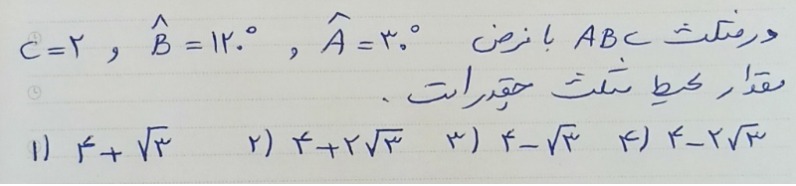 در مثلث ABC با فرض Â = ۳۰° , B̂ = ۱۲۰° , C = ۲
مقدار محیط مثلث چقدر است .
۱) ۴ + √۳ ۲) ۴ + ۲√۳ ۳) ۴ - √۳ ۴) ۴ - ۲√۳